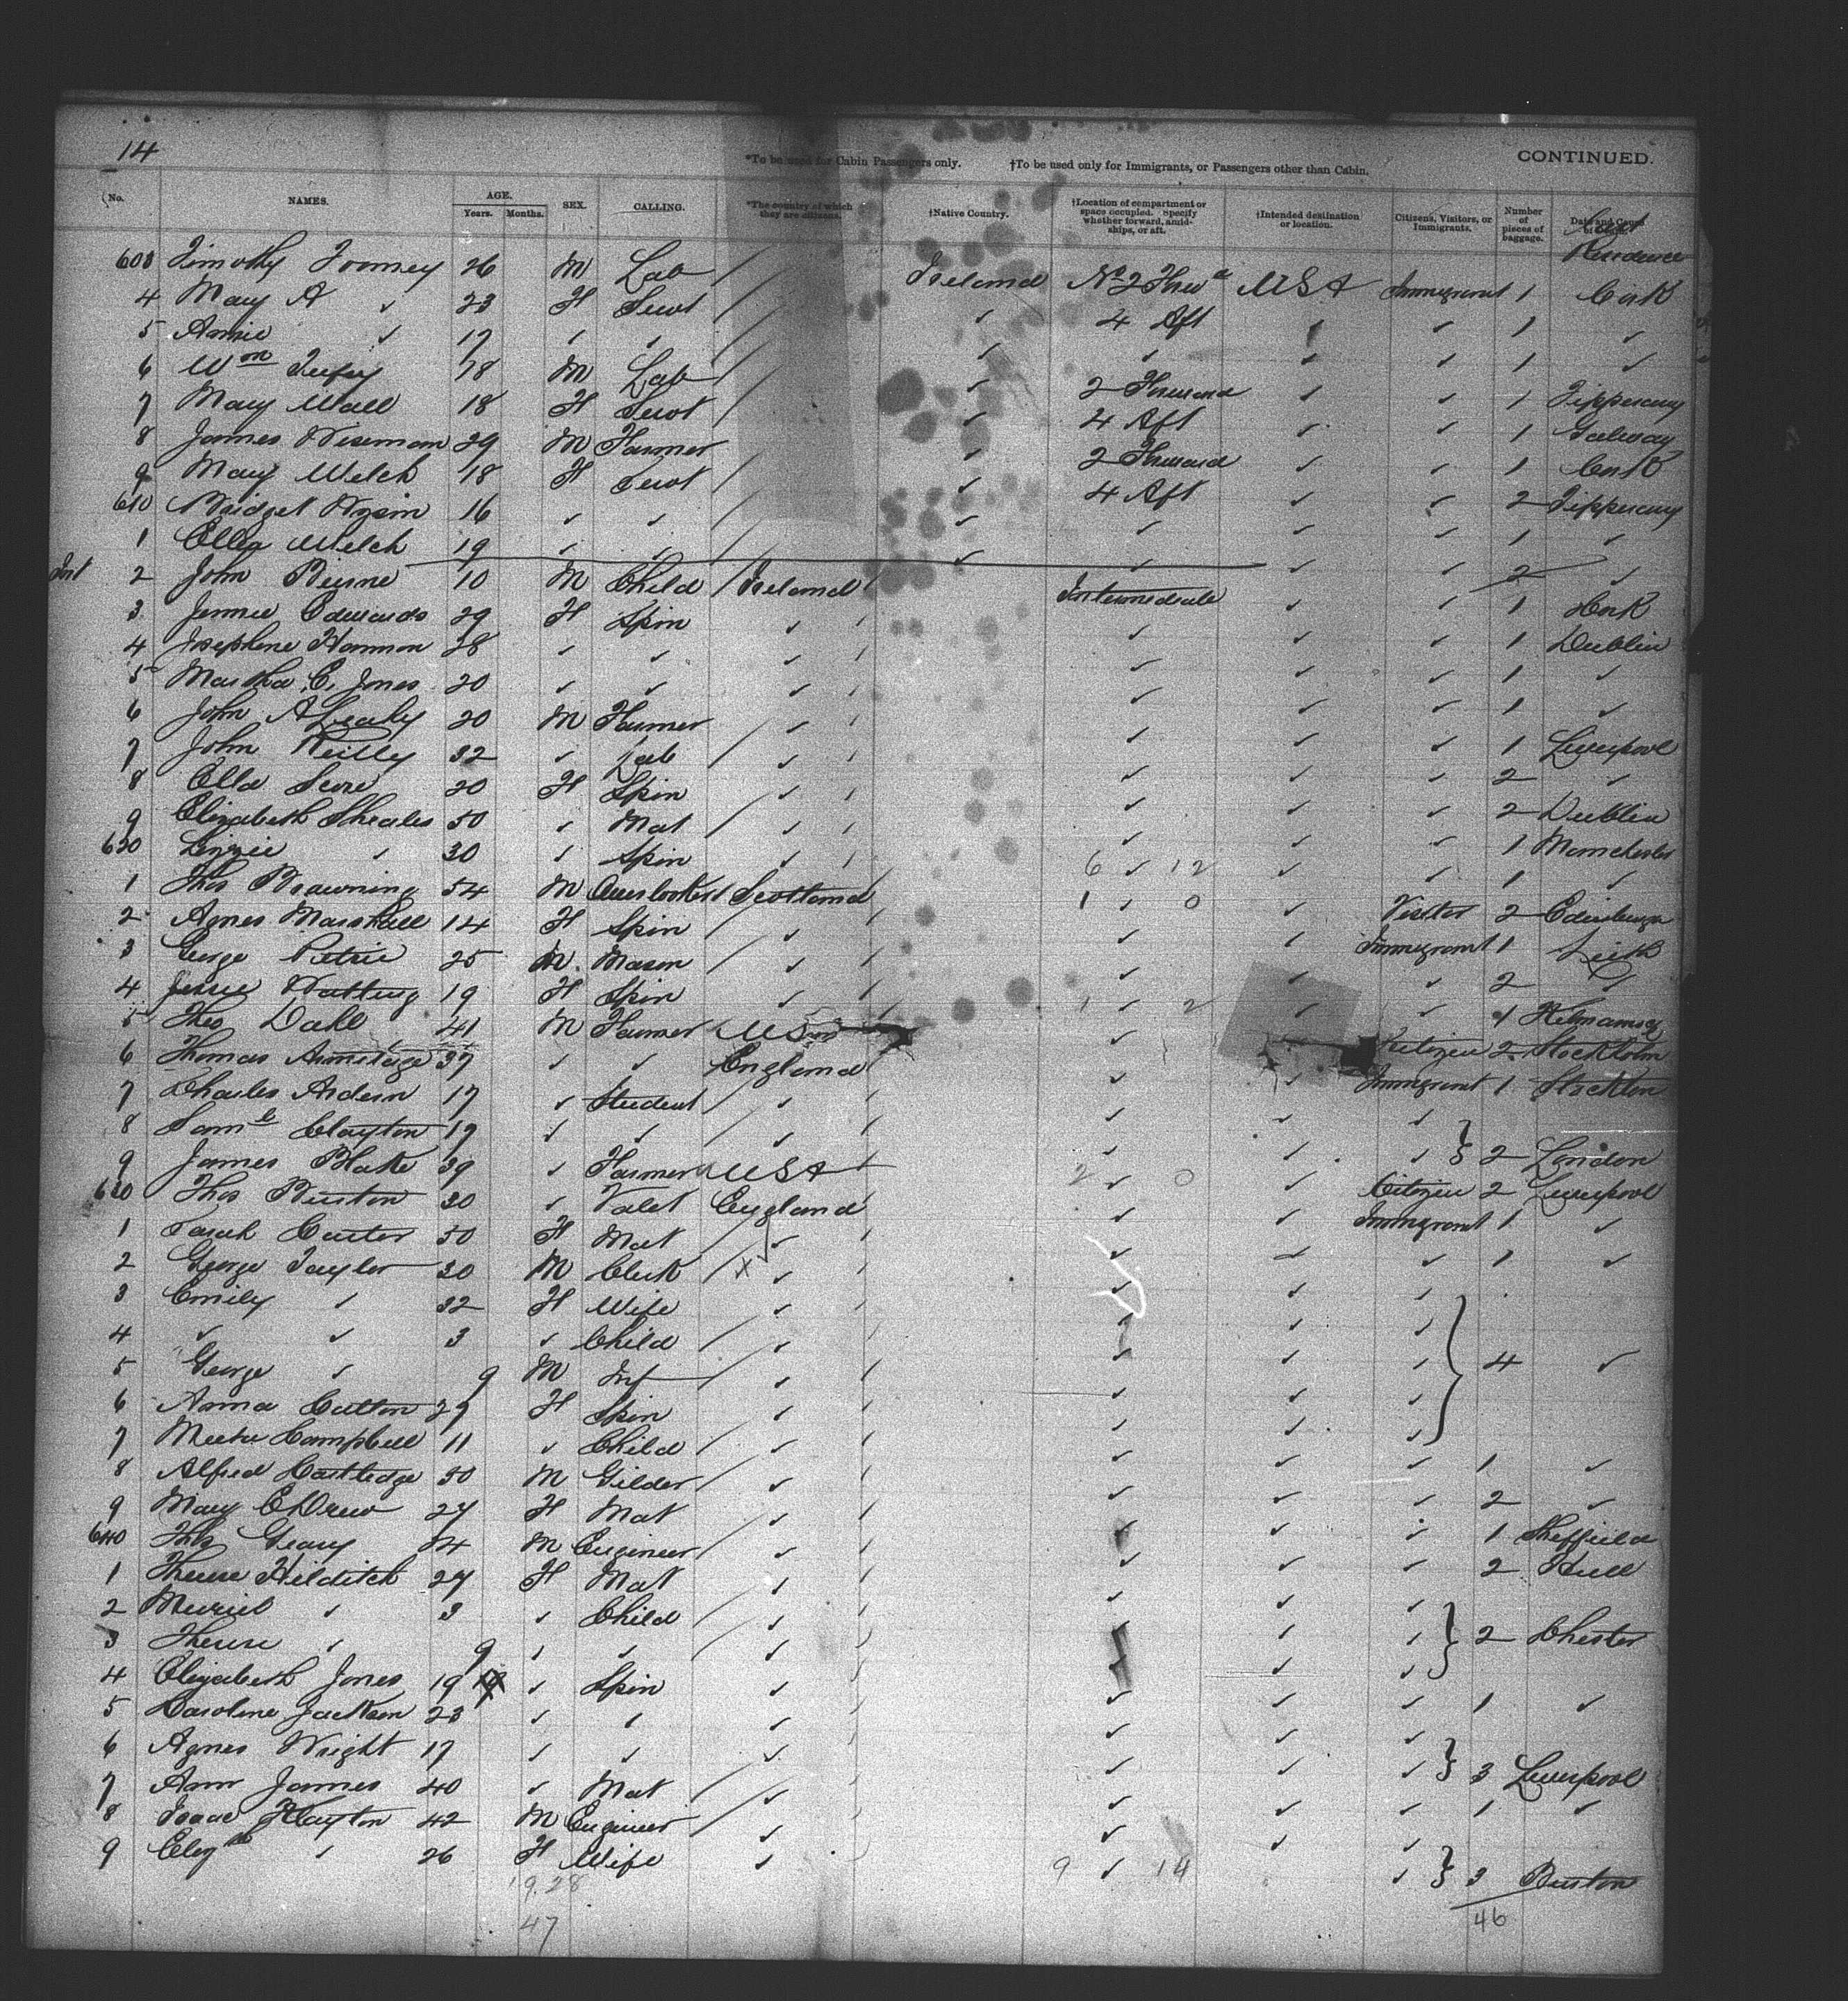 14
*To be used for Cabin Passengers only. †To be used only for Immigrants, or Passengers other than Cabin. CONTINUED.
No. NAMES. AGE. Years. Months. SEX. CALLING. *The country of which they are citizens. †Native Country. †Location of compartment or space occupied. Specify whether forward, amidships, or aft. †Intended destination or location. Citizens, Visitors, or Immigrants. Number of pieces of baggage. Date and Cause
Last Residence
603 Timothy Toomey 26 M Lab Ireland No 2 Forwd USA Immigrant 1 Cork
4 Mary A ✓ 23 F Servt ✓ 4 Aft ✓ ✓ 1 ✓
5 Annie ✓ 17 ✓ ✓ ✓ ✓ ✓ ✓ 1 ✓
6 Wm 18 M Lab ✓ 2 Forward ✓ ✓ 1 Tipperary
7 Mary Wall 18 F Servt ✓ 4 Aft ✓ ✓ 1 Galway
8 James Wiseman 29 M Farmer ✓ 2 Forward ✓ ✓ 1 Cork
9 Mary Welch 18 F Servt ✓ 4 Aft ✓ ✓ 2 Tipperary
610 Bridget 16 ✓ ✓ ✓ ✓ ✓ ✓ 1 ✓
1 Ellen Welch 19 ✓ ✓ ✓ ✓ ✓ ✓ 2 ✓
Int 2 John Beirne 10 M Child Ireland Intermediate ✓ ✓ 1 Cork
3 Jennie Edwards 29 F Spin ✓ ✓ ✓ ✓ 1 Dublin
4 Josephine Hannon 28 ✓ ✓ ✓ ✓ ✓ ✓ 1 ✓
5 Martha E. Jones 20 ✓ ✓ ✓ ✓ ✓ ✓ 1 ✓
6 John A Leahy 20 M Farmer ✓ ✓ ✓ ✓ 1 Liverpool
7 John Reilly 32 ✓ Lab ✓ ✓ ✓ ✓ 2 ✓
8 Ella 20 F Spin ✓ ✓ ✓ ✓ 2 Dublin
9 Elizabeth Sheales 50 ✓ Mat ✓ ✓ ✓ ✓ 1 Manchester
620 Lizzie ✓ 30 ✓ Spin ✓ 6 ✓ 12 ✓ ✓ 1 ✓
1 Thos Browning 54 M Overlooker Scotland 1 ✓ 0 ✓ Visitor 2 Edinburgh
2 Agnes Marshall 14 F Spin ✓ ✓ ✓ Immigrant 1 Leith
3 George Petrie 25 M. Mason ✓ ✓ ✓ ✓ 2 ✓
4 Jessie 19 F Spin ✓ 1 ✓ 2 ✓ ✓ 1
5 Theo Dahl 41 M Farmer USA ✓ Citizen 2 Stockholm
6 Thomas Armitage 37 ✓ ✓ England ✓ ✓ Immigrant 1 Stockton
7 Charles Ardern 17 ✓ Student ✓ ✓ ✓ ✓
8 Saml Clayton 19 ✓ ✓ ✓ ✓ ✓ } 2 London
9 James Blake 39 ✓ Farmer USA 2 ✓ 0 ✓ Citizen 2 Liverpool
630 Thos Burton 30 ✓ Valet England ✓ ✓ Immigrant 1 ✓
1 Sarah Carter 50 F Mat ✓ ✓ ✓ ✓ 1 ✓
2 George Taylor 30 M Clerk X ✓ ✓ ✓ ✓
3 Emily ✓ 32 F Wife ✓ ✓ ✓ ✓
4 ✓ ✓ 3 ✓ Child ✓ ✓ ✓ ✓ } 4 ✓
5 George ✓ 9 M Inf ✓ ✓ ✓ ✓
6 Anna Cutton 27 F Spin ✓ ✓ ✓ ✓
7 Campbell 11 ✓ Child ✓ ✓ ✓ ✓ 1 ✓
8 Alfred Cartledge 50 M Gilder ✓ ✓ ✓ ✓ 2 ✓
9 Mary E Drew 27 F Mat ✓ ✓ ✓ ✓ 1 Sheffield
640 Thos Geary 24 M Engineer ✓ ✓ ✓ ✓ 2 Hull
1 Therese Hilditch 27 F Mat ✓ ✓ ✓ ✓
2 Muriel ✓ 3 ✓ Child ✓ ✓ ✓ ✓ } 2 Chester
3 Therese ✓ 9 ✓ ✓ ✓ ✓ ✓ ✓
4 Elizabeth Jones 19 ✓ Spin ✓ ✓ ✓ ✓ 1 ✓
5 Caroline Jackson 23 ✓ ✓ ✓ ✓ ✓ ✓
6 Agnes Wright 17 ✓ ✓ ✓ ✓ ✓ ✓ } 3 Liverpool
7 Ann James 40 ✓ Mat ✓ ✓ ✓ ✓ 1 ✓
8 Isaac Hayton 42 M Engineer ✓ ✓ ✓ ✓
9 Elizth ✓ 26 F Wife ✓ 9 ✓ 14 ✓ } 3 Burton
19.28
47
46